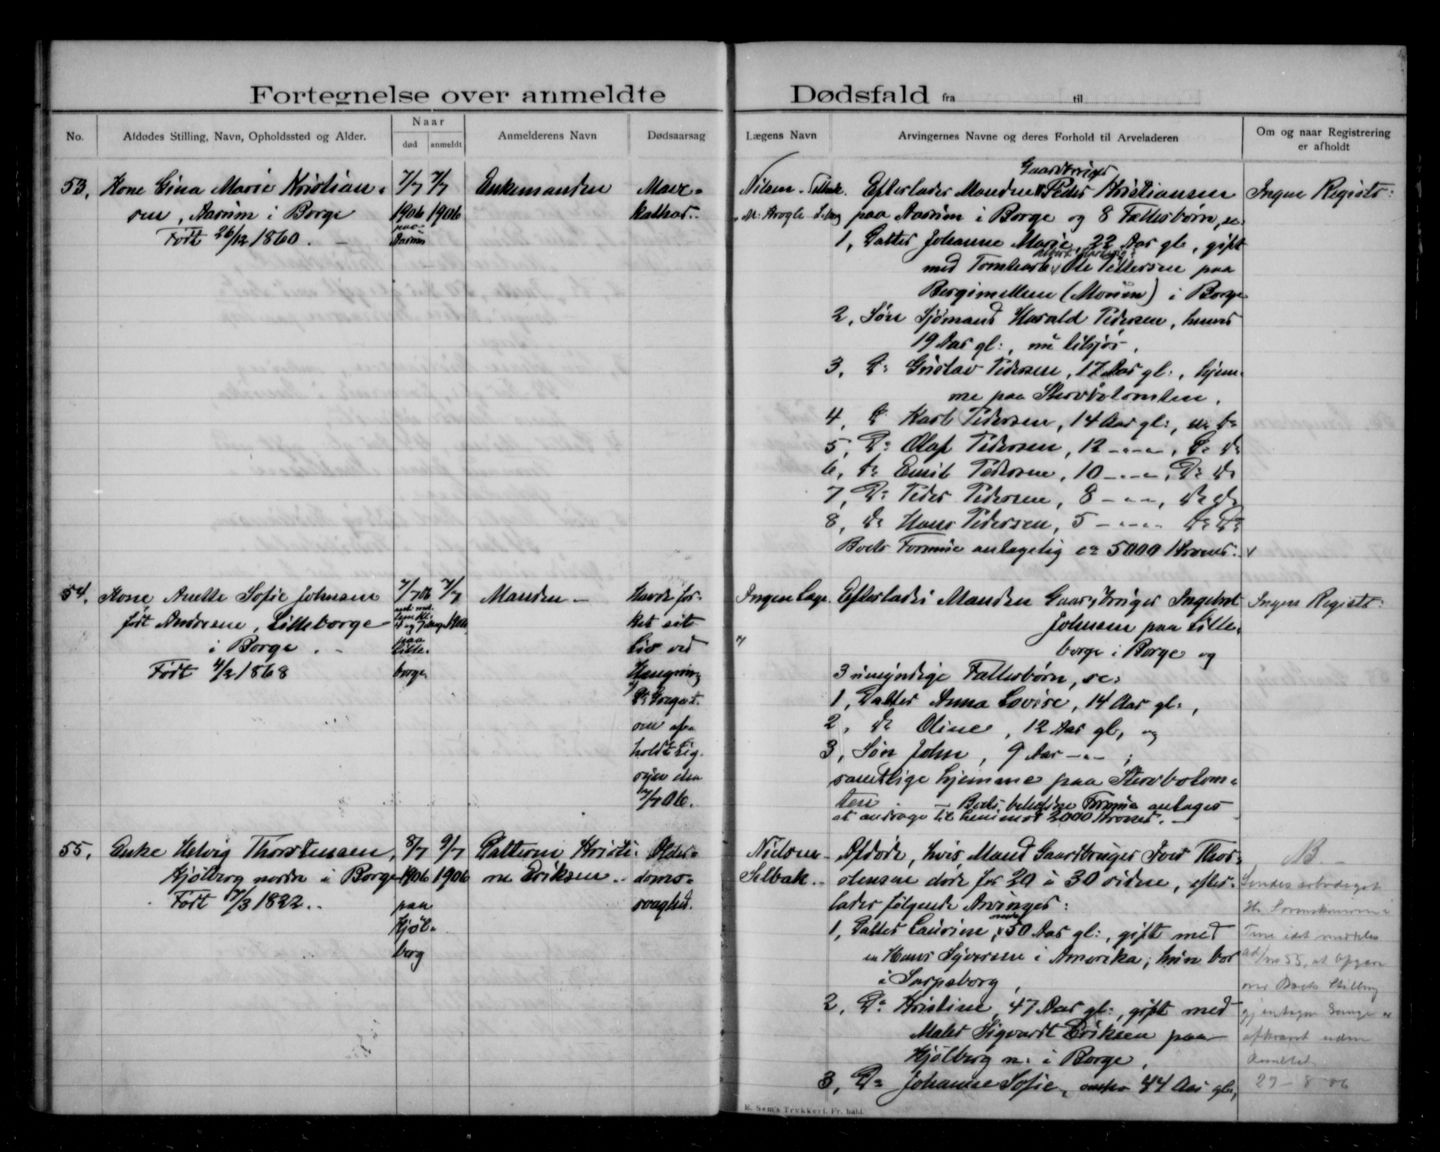 Fortegnelse over anmeldte Dødsfald fra til
No. Afdødes Stilling, Navn, Opholdssted og Alder. Naar død anmeldt Anmelderens Navn Dødsaarsag Lægens Navn Arvingernes Navne og deres Forhold til Arveladeren Om og naar Registrering er afholdt
53. Kone Gina Marie Kristian-
sen, Aarum i Borge
Født 26/12 1860.
7/7 7/7
1906 1906
paa
Aarum
Enkemanden
Mave-
katharr.
Nilsen
Gaardbruger
Efterlader Manden Peder Kristiansen
paa Aarum i Borge og 8 Fællesbørn, se:
1, Datter Johanne Marie, 22 Aar gl., gift
med Ole Pettersen paa
i Borge
2, Søn Sjømand Harald Pedersen, henved
19 Aar gl:, nu tilsjøs,
3, Do Gustav Pedersen, 17 Aar gl:, hjem-
me paa
4, Do Karl Pedersen, 14 Aar gl:,
5, Do Olaf Pedersen, 12 -"-"-, Do do
6, do Emil Pedersen, 10 -"-"-, Do do
7, Do Peder Pedersen, 8 -"-"-, do do
8, do Hans Pedersen, 5 -"-"- Do Do
Boets Formue antagelig ca 5000 Kroner.
Ingen Registr:
54. Kone Anette Sofie Johnsen
født Andersen, Lilleborge
i Borge.
Født 4/2 1868
7/7 06 7/7
paa
Lille-
borge
Manden
Havde for-
kortet sit
Liv ved
Hængning
holdt Lig-
syn den
7/7 06.
Ingen Læge
Efterlader Manden Gaardbruger Ingebret
Johnsen paa Lille-
borge i Borge og
3 umyndige Fællesbørn, se:
1, Datter Anna Lovise, 14 Aar gl:,
2, do Oline, 12 Aar gl, og
3, Søn John, 9 Aar -"-,
samtlige hjemme paa
Boets beholdne Formue antages
at andrage til henimod 2000 Kroner.
Ingen Registr:
55. Enke Helvig Thorstensen,
Hjølberg nordre i Borge
Født 17/3 1822.
8/7 9/7
1906 1906
paa
Hjøl-
berg
Datteren Kristi-
ne Eriksen
Alder-
doms-
svaghed.
Nielsen
Selbak.
Afdøde, hvis Mand Gaardbruger Thor-
stensen døde for 20 à 30 siden, efter-
lader følgende Arvinger:
1, Datter Laurine, 50 Aar gl:, gift med
en Hans Syversen i Amerika; hun bor
i Sarpsborg,
2, Do Kristine, 47 Aar gl:, gift med
Maler Sigvardt Eriksen paa
Hjølberg n: i Borge,
3, Do Johanne Sofie, 44 Aar gl:,
NB
29-8-06
E. Sem's Trykkeri, Fr. hald.